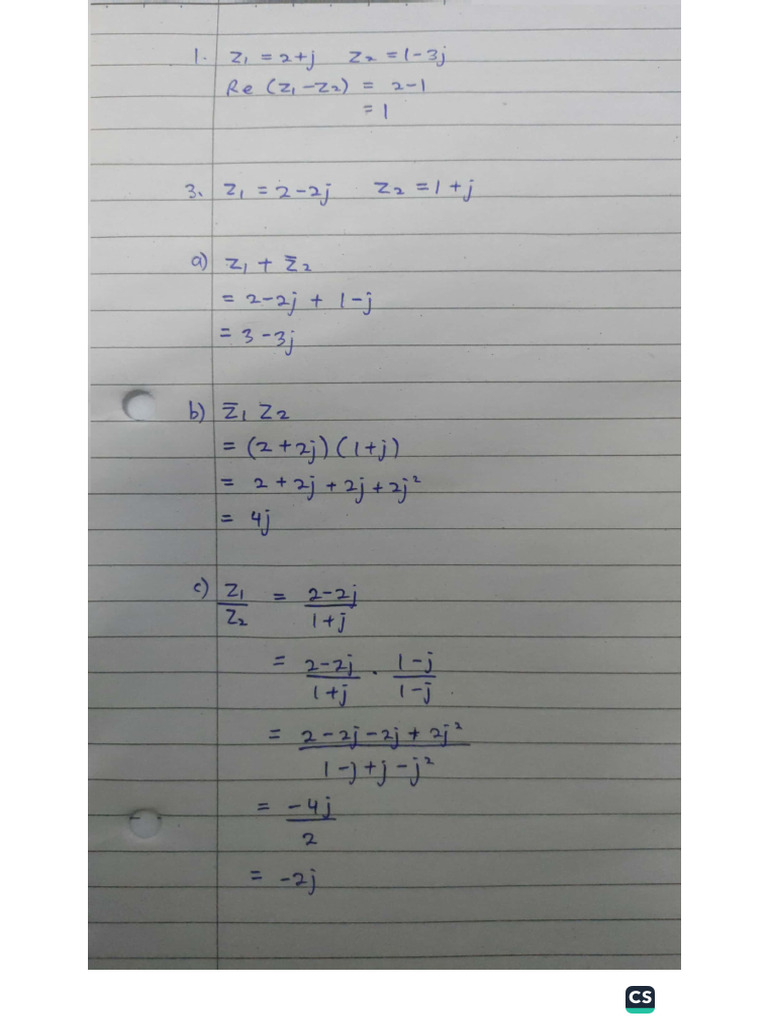 1. z₁ = 2+j z₂ = 1-3j
Re (z₁-z₂) = 2-1
= 1
3. z₁ = 2-2j z₂ = 1+j
a) z₁ + z̄₂
= 2-2j + 1-j
= 3-3j
b) z̄₁ z₂
= (2+2j)(1+j)
= 2+2j+2j+2j²
= 4j
c) z₁/z₂ = 2-2j/1+j
= 2-2j/1+j . 1-j/1-j
= 2-2j-2j+2j²/1-j+j-j²
= -4j/2
= -2j
CS